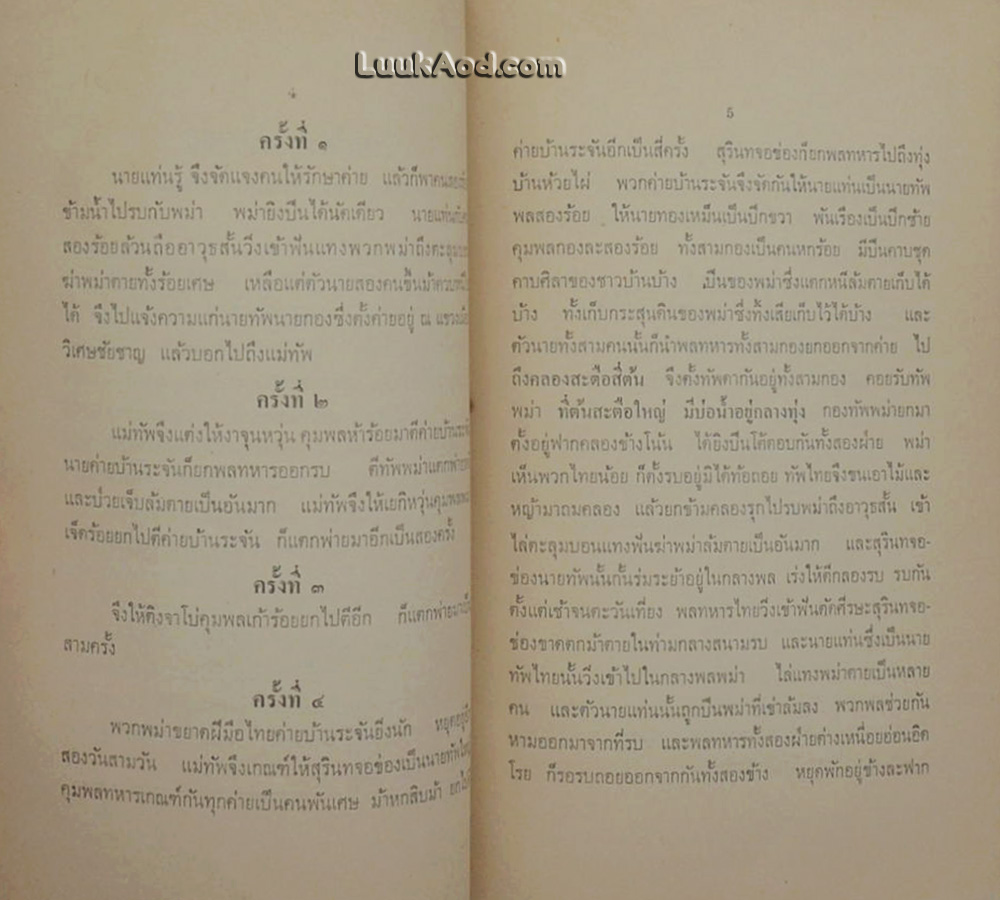 LuukAod.com
๔
ครั้งที่ ๑
นายแท่นรู้ จึงจัดแจงคนให้รักษาค่าย แล้วก็พาคน
ข้ามน้ำไปรบกับพม่า พม่ายิงปืนได้นัดเดียว นายแท่น
สองร้อยล้วนถืออาวุธสั้นวิ่งเข้าฟันแทงพวกพม่าถึง
ฆ่าพม่าตายทั้งร้อยเศษ เหลือแต่ตัวนายสองคนขึ้นม้า
ได้ จึงไปแจ้งความแก่นายทัพนายกองซึ่งตั้งค่ายอยู่ ณ แขวง
วิเศษชัยชาญ แล้วบอกไปถึงแม่ทัพ
ครั้งที่ ๒
แม่ทัพจึงแต่งให้งาจุนหวุ่น คุมพลห้าร้อยมาตีค่ายบ้าน
นายค่ายบ้านระจันก็ยกพลทหารออกรบ ตีทัพพม่าแตกพ่าย
และป่วยเจ็บล้มตายเป็นอันมาก แม่ทัพจึงให้เยกิหวุ่นคุมพล
เจ็ดร้อยยกไปตีค่ายบ้านระจัน ก็แตกพ่ายมาอีกเป็นสองครั้ง
ครั้งที่ ๓
จึงให้ติงจาโบ่คุมพลเก้าร้อยยกไปตีอีก ก็แตกพ่าย
สามครั้ง
ครั้งที่ ๔
พวกพม่าขยาดฝีมือไทยค่ายบ้านระจันยิ่งนัก หยุดอยู่
สองวันสามวัน แม่ทัพจึงเกณฑ์ให้สุรินทจอข่องเป็นนายทัพ
คุมพลทหารเกณฑ์กันทุกค่ายเป็นคนพันเศษ ม้าหกสิบม้า
5
ค่ายบ้านระจันอีกเป็นสี่ครั้ง สุรินทจอข่องก็ยกพลทหารไปถึงทุ่ง
บ้านห้วยไผ่ พวกค่ายบ้านระจันจึงจัดกันให้นายแท่นเป็นนายทัพ
พลสองร้อย ให้นายทองเหม็นเป็นปีกขวา พันเรืองเป็นปีกซ้าย
คุมพลกองละสองร้อย ทั้งสามกองเป็นคนหกร้อย มีปืนคาบชุด
คาบศิลาของชาวบ้านบ้าง ปืนของพม่าซึ่งแตกหนีล้มตายเก็บได้
บ้าง ทั้งเก็บกระสุนดินของพม่าซึ่งทิ้งเสียเก็บไว้ได้บ้าง และ
ตัวนายทั้งสามคนนั้นก็นำพลทหารทั้งสามกองยกออกจากค่าย ไป
ถึงคลองสะตือสี่ต้น จึงตั้งทัพดากันอยู่ทั้งสามกอง คอยรับทัพ
พม่า ที่ต้นสะตือใหญ่ มีบ่อน้ำอยู่กลางทุ่ง กองทัพพม่ายกมา
ตั้งอยู่ฟากคลองข้างโน้น ได้ยิงปืนโต้ตอบกันทั้งสองฝ่าย พม่า
เห็นพวกไทยน้อย ก็ตั้งรบอยู่มิได้ท้อถอย ทัพไทยจึงขนเอาไม้และ
หญ้ามาถมคลอง แล้วยกข้ามคลองรุกไปรบพม่าถึงอาวุธสั้น เข้า
ไล่ตะลุมบอนแทงฟันฆ่าพม่าล้มตายเป็นอันมาก และสุรินทจอ-
ข่องนายทัพนั้นกั้นร่มระย้าอยู่ในกลางพล เร่งให้ตีกลองรบ รบกัน
ตั้งแต่เช้าจนตะวันเที่ยง พลทหารไทยวิ่งเข้าฟันตัดศีรษะสุรินทจอ-
ข่องขาดตกม้าตายในท่ามกลางสนามรบ และนายแท่นซึ่งเป็นนาย
ทัพไทยนั้นวิ่งเข้าไปในกลางพลพม่า ไล่แทงพม่าตายเป็นหลาย
คน และตัวนายแท่นนั้นถูกปืนพม่าที่เข่าล้มลง พวกพลช่วยกัน
หามออกมาจากที่รบ และพลทหารทั้งสองฝ่ายต่างเหนื่อยอ่อนอิด
โรย ก็รอรบถอยออกจากกันทั้งสองข้าง หยุดพักอยู่ข้างละฟาก